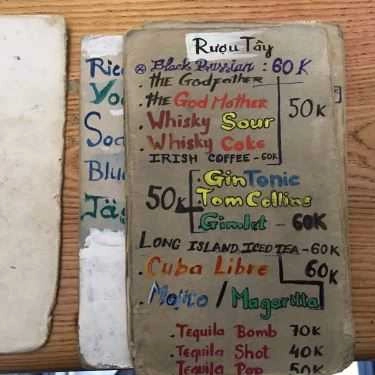 Rượu Tây
Black Russian : 60K
. the Godfather
. the God Mother
50K
. Whisky Sour
. Whisky Coke
IRISH COFFEE - 60K
. Gin Tonic
50K
Tom Collins
Gimlet - 60K
LONG ISLAND ICED TEA - 60K
. Cuba Libre
60K
. Mojito / Magarita
. Tequila Bomb 70K
. Tequila Shot 40K
. Tequila Pop 50K